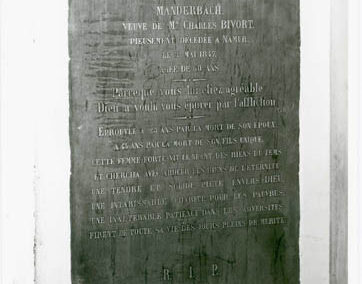 MANDERBACH
VEUVE DE Mr CHARLES BIVORT.
PIEUSEMENT DÉCÉDÉE A NAMUR,
LE MAI 1847,
AGÉE DE 50 ANS
Parce que vous fus chez agréable
Dieu a voulu vous éprouver par l'affliction
ÉPROUVÉE A 23 ANS PAR LA MORT DE SON ÉPOUX,
A 45 ANS PAR LA MORT DE SON FILS UNIQUE,
CETTE FEMME FORTE VIT LE NÉANT DES BIENS DU TEMS
ET CHERCHA AVEC ARDEUR LES BIENS DE L'ÉTERNITÉ
UNE TENDRE ET SOLIDE PIÉTÉ ENVERS DIEU,
UNE INTARISSABLE CHARITÉ POUR LES PAUVRES,
UNE INALTÉRABLE PATIENCE DANS LES ADVERSITÉS
FIRENT DE TOUTE SA VIE DES JOURS PLEINS DE MÉRITE
R I P